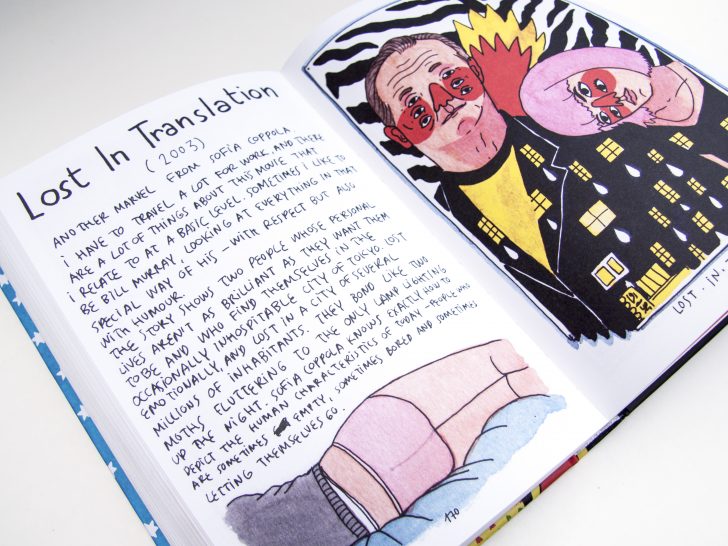 Lost In Translation
(2003)
ANOTHER MARVEL FROM SOFIA COPPOLA.
i HAVE TO TRAVEL A LOT FOR WORK AND THERE
ARE A LOT OF THINGS ABOUT THIS MOVIE THAT
i RELATE TO AT A BASIC LEVEL. SOMETIMES I LIKE TO
BE BILL MURRAY. LOOKING AT EVERYTHING IN THAT
SPECIAL WAY OF HIS – WITH RESPECT BUT ALSO
WITH HUMOUR.
THE STORY SHOWS TWO PEOPLE WHOSE PERSONAL
LIVES AREN'T AS BRILLIANT AS THEY WANT THEM
TO BE AND WHO FIND THEMSELVES IN THE
OCCASIONALLY INHOSPITABLE CITY OF TOKYO, LOST
EMOTIONALLY, AND LOST IN A CITY OF SEVERAL
MILLIONS OF INHABITANTS. THEY BOND LIKE TWO
MOTHS FLUTTERING TO THE ONLY LAMP LIGHTING
UP THE NIGHT. SOFIA COPPOLA KNOWS EXACTLY HOW TO
DEPICT THE HUMAN CHARACTERISTICS OF TODAY – PEOPLE WHO
ARE SOMETIMES EMPTY, SOMETIMES BORED AND SOMETIMES
LETTING THEMSELVES GO.
170
LOST · IN